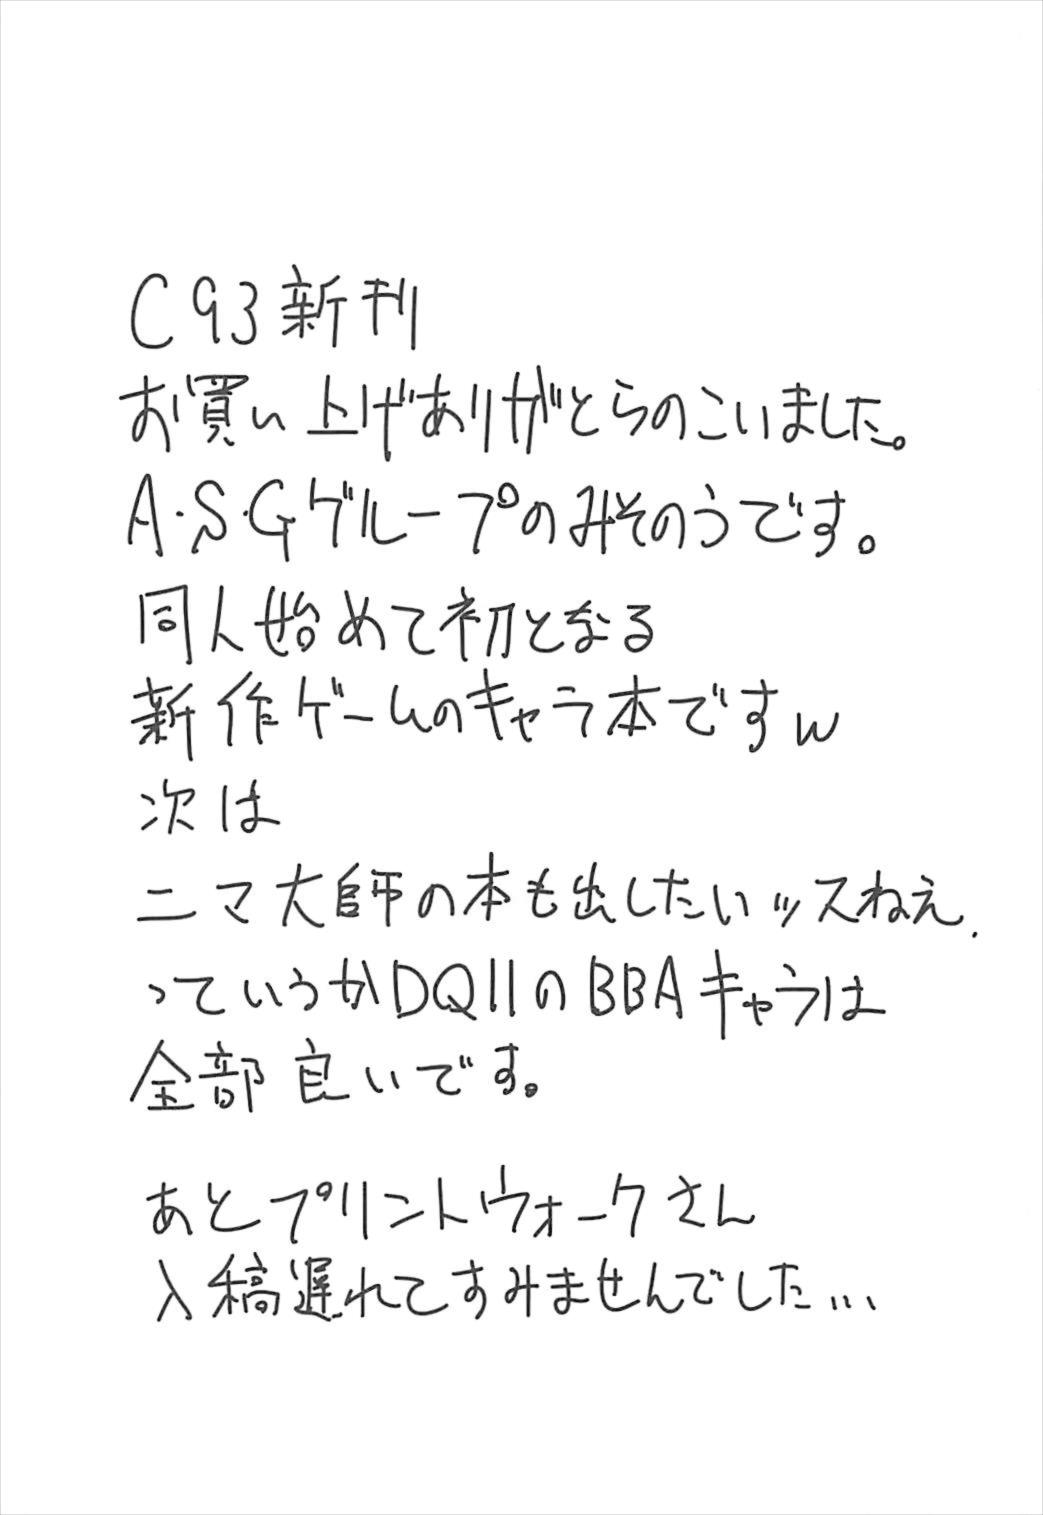 C93新刊
お買い上げありがとらのこいました。
A・S・Gグループのみそのうです。
同人始めて初となる
新作ゲームのキャラ本ですw
次は
ニマ大師の本も出したいッスねえ.
っていうかDQ11のBBAキャラは
全部良いです。
あとプリントウォークさん
入稿遅れてすみませんでした…